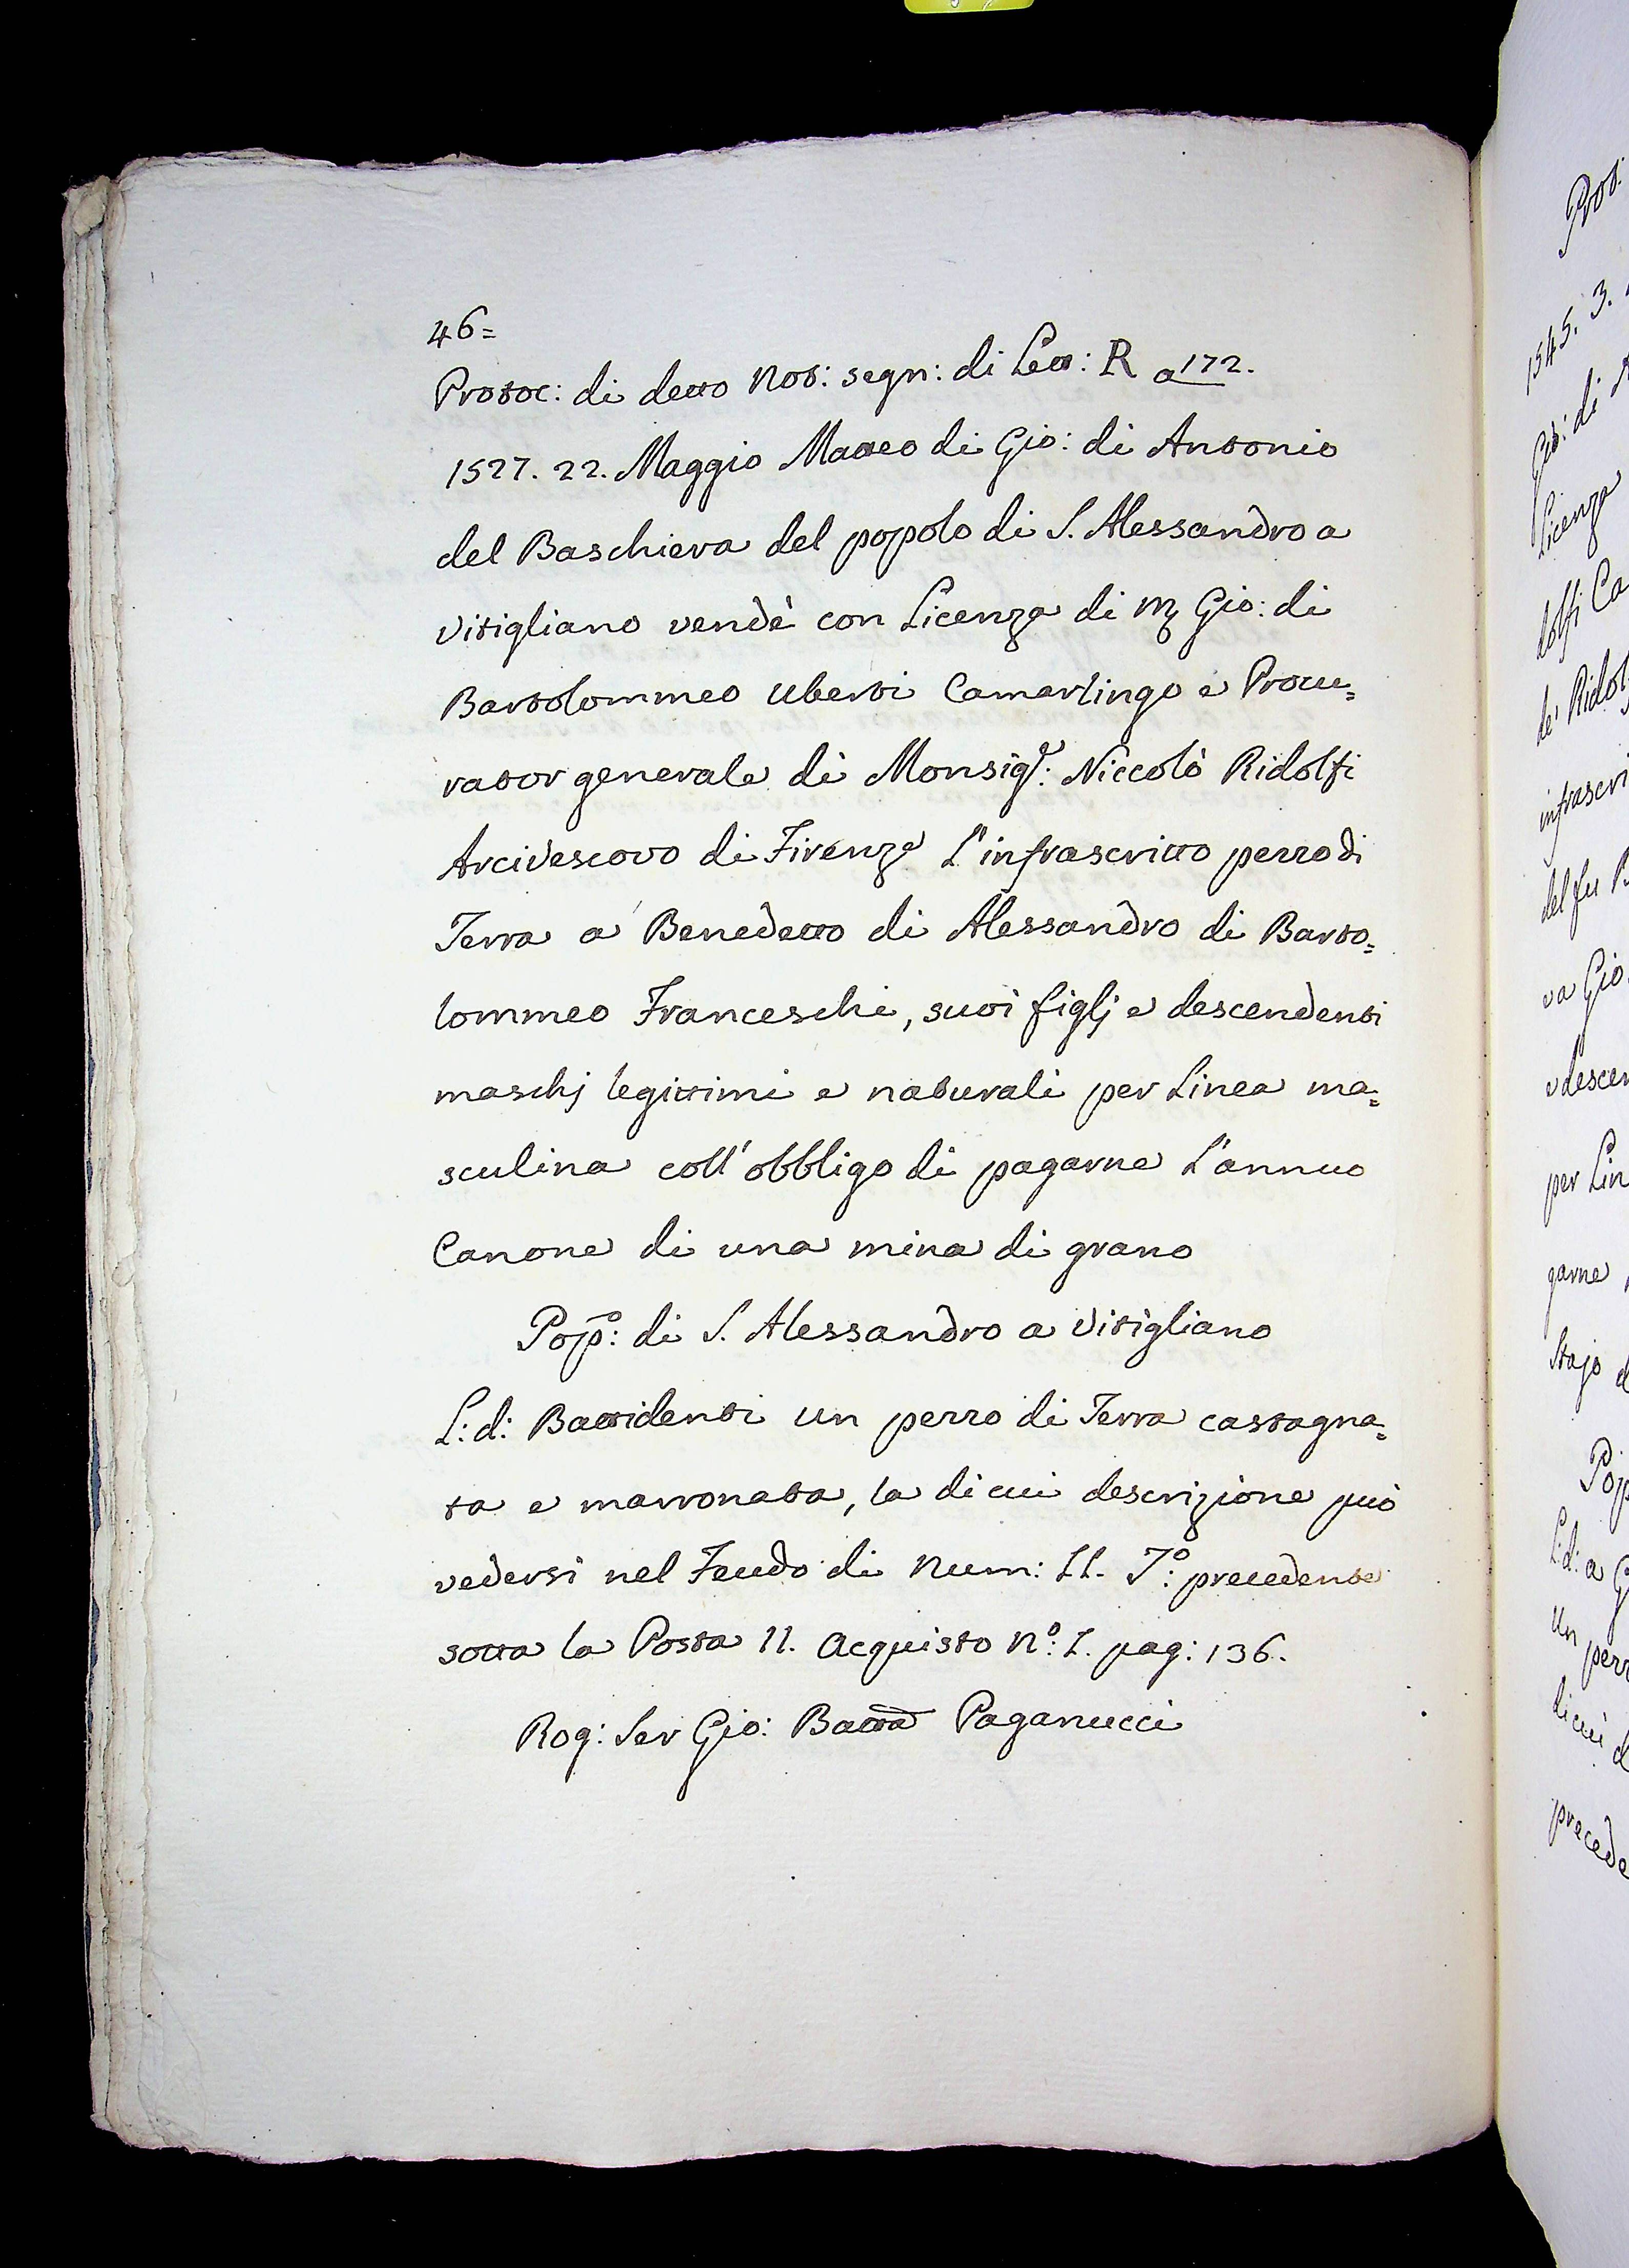 46=
Protoc: di detto Not: segn: di Lett: R a 172.
1527. 22. Maggio Matteo di Gio: di Antonio
del Baschiera del popolo di S. Alessandro a
Vitigliano vendè con Licenza di M Gio: di
Bartolommeo Uberti Camarlingo e Procu=
rator generale di Monsigr: Niccolò Ridolfi
Arcivescovo di Firenze L'infrascritto pezzo di
Terra a Benedetto di Alessandro di Barto=
lommeo Franceschi, suoi figlj e descendenti
maschj legittimi e naturali per Linea ma=
sculina coll'obbligo di pagarne L'annuo
Canone di una mina di grano
Popo: di S. Alessandro a Vitigliano
L: d: Battidenti un pezzo di Terra castagna=
ta e marronata, la di cui descrizione può
vedersi nel Feudo di Num: II. To: precedente
sotto la Posta 11. Acquisto No: I. pag: 136.
Rog: Ser Gio: Batta Paganucci
1545. 3.
Licenza
dolfi Ca
de' Ridol
infrascri
del fu B
va Gio.
e descen
per Lin
garne
Stajo d
Pop
L: d: a G
un pezz
di cui d
precede